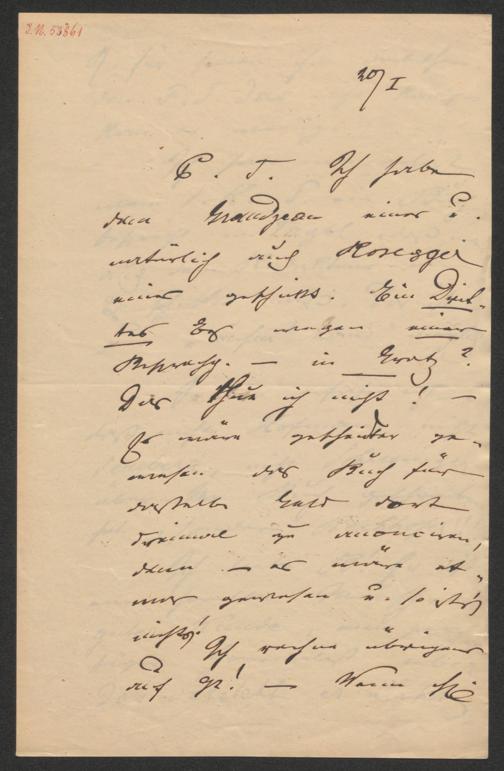 I.N. 53861
20/I
P. T. Ich habe
dem Grandjean eines u.
natürlich auch Rosegger
eines geschickt. Ein Drit-
tes Ex wegen einer
Besprechg. — in Gratz?
Das thue ich nicht! —
Es wäre gescheidter ge-
wesen das Buch für
dasselbe Geld dort
dreimal zu annonciren,
denn — es wäre et-
was gewesen u. so ist's
nichts!
Ich rechne übrigens
auf G! — Wenn Sie